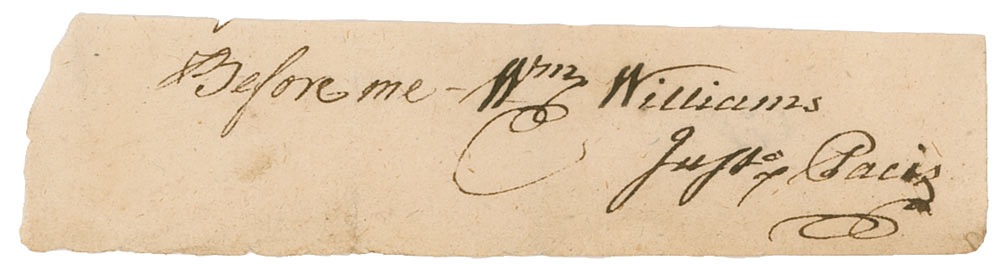 Before me - Wm Williams
Justo Pacis